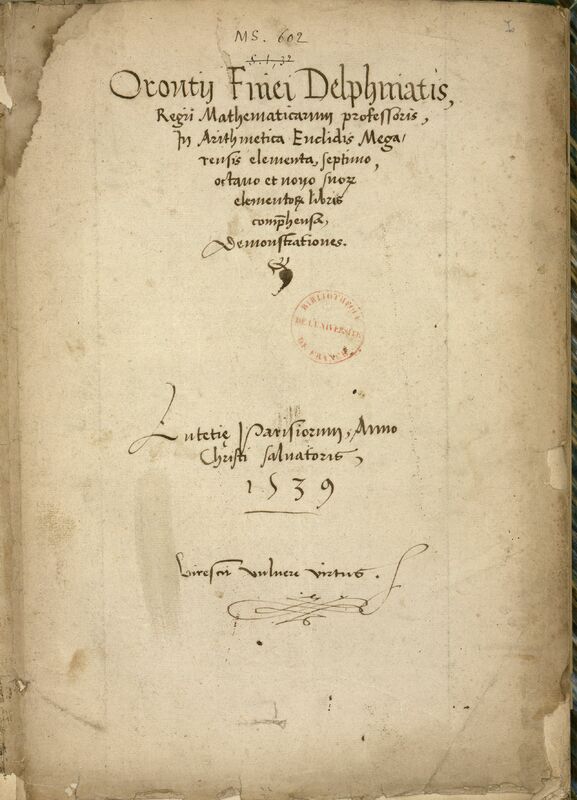 MS. 602
1
S. 1, 32
Orontij Finei Delphinatis,
Regii Mathematicarum professoris,
In Arithmetica Euclidis Mega/
rensis elementa, septimo,
octauo et nono suoꝝ
elementoꝝ libris
comp̄hensa,
Demonstrationes.
BIBLIOTHÈQUE
DE L'UNIVERSITÉ
DE FRANCE
Lutetię Parisiorum, Anno
Christi saluatoris,
1539
Virescit vulnere virtus.